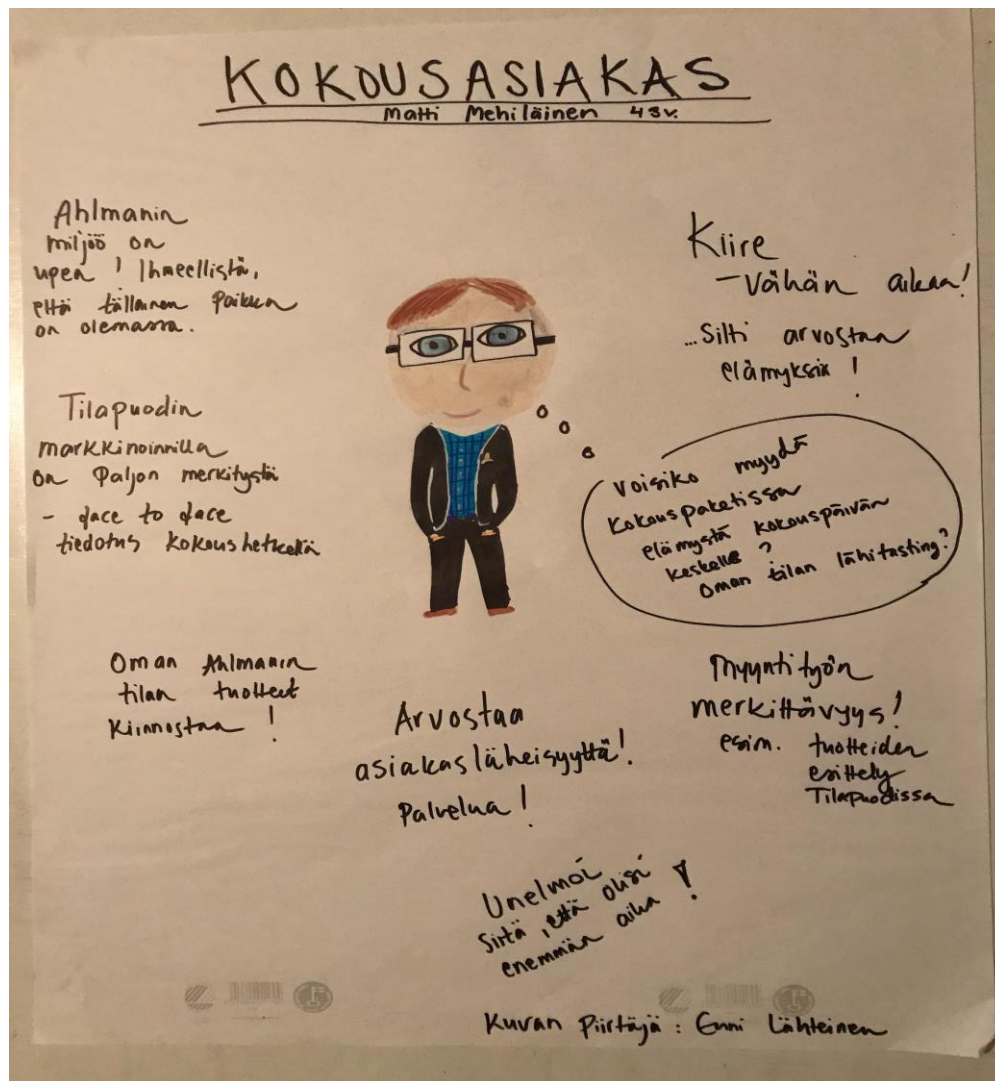 KOKOUSASIAKAS
Matti Mehiläinen 43v.
Ahlmanin
miljöö on
upea! Ihmeellistä,
että tällainen paikka
on olemassa.
Tilapuodin
markkinoinnilla
on paljon merkitystä
- face to face
tiedotus kokoushetkellä
Oman Ahlmanin
tilan tuotteet
kiinnostaa!
Arvostaa
asiakasläheisyyttä!
Palvelua!
Kiire
- Vähän aikaa!
...Silti arvostaa
elämyksiä!
Voisiko myydä
kokouspaketissa
elämystä kokouspäivän
keskelle?
Oman tilan lähitasting?
Myyntityön
merkittävyys!
esim. tuotteiden
esittely
Tilapuodissa
Unelmoi
siitä, että olisi
enemmän aika!
Kuvan Piirtäjä: Enni Lähteinen